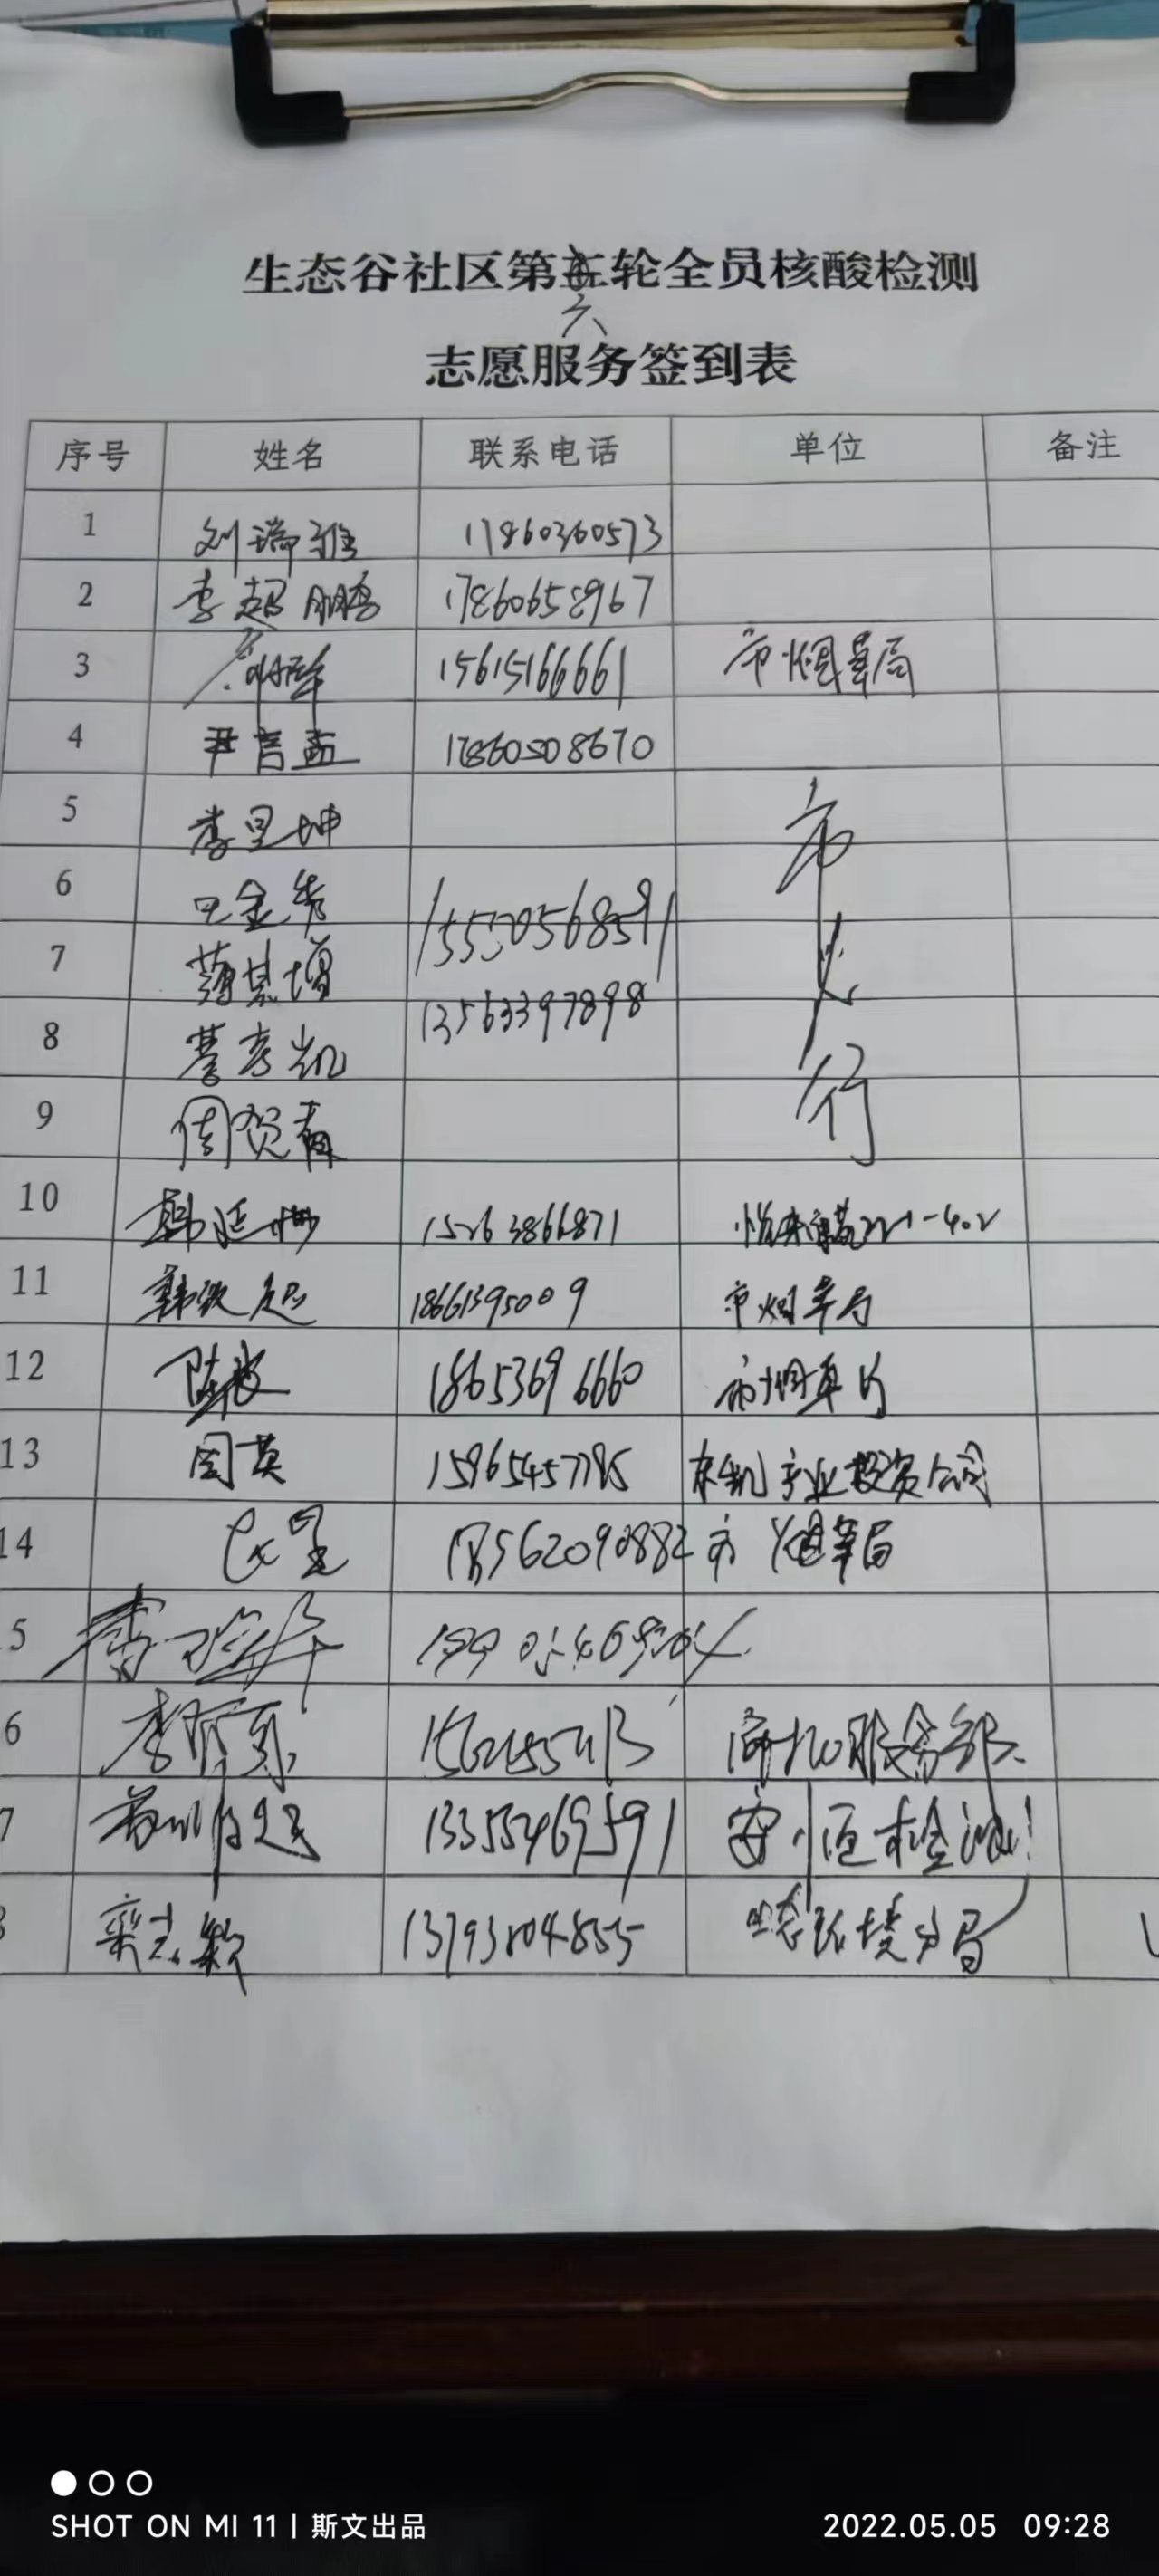 生态谷社区第五轮全员核酸检测
六
志愿服务签到表
序号 姓名 联系电话 单位 备注
1 刘瑞雅 17860360573
2 李超鹏 17860658967
3 15615166661 市烟草局
4 尹言孟 17860508670
5 李呈坤
6 王金秀
15550568591
7 薄其增
13563397898
8 孝凯
9 周贺青
市人行
10 韩延 15263866871
11 韩钦超 18661395009 市烟草局
12 陈波 18653696660 市烟草局
13 周英 15965457785 东凯产业投资公司
14 18562090882 市烟草局
5
6 李 服务部
7 13355469591 安恒检测
8 栾志颖 13793804855 生态环境分局
SHOT ON MI 11 | 斯文出品
2022.05.05 09:28